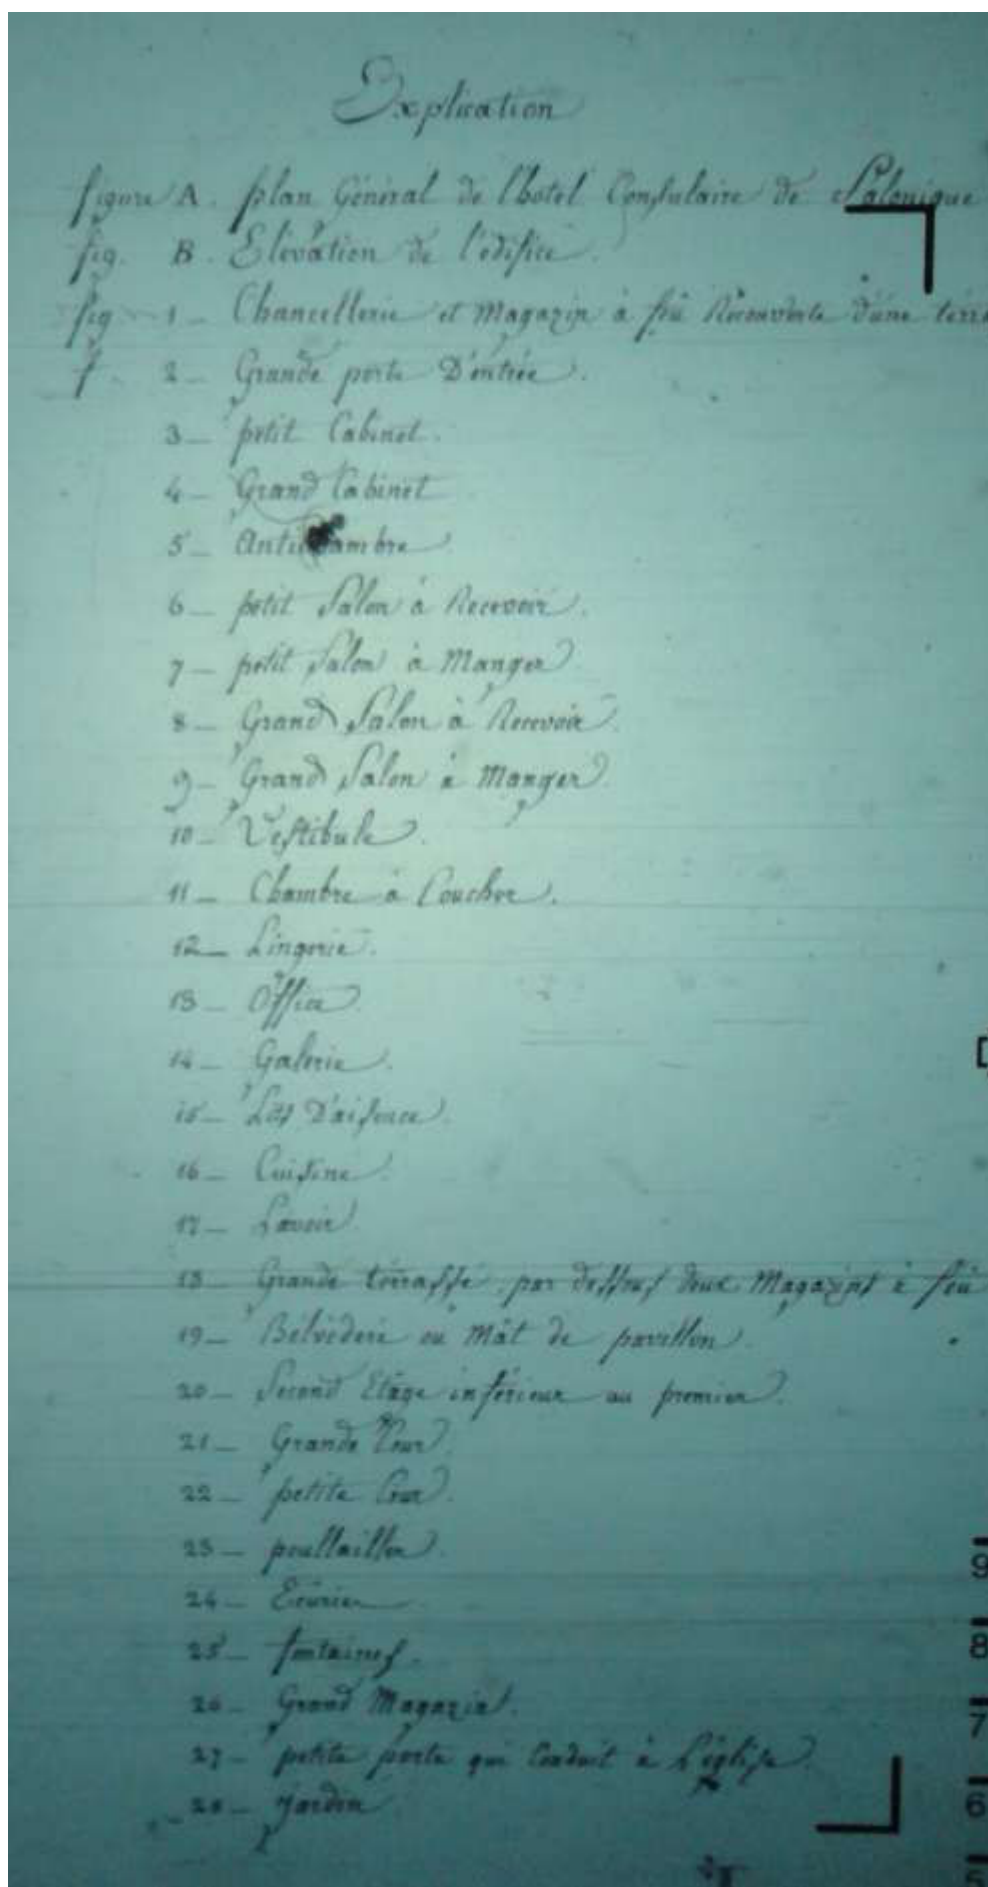 Explication
figure A. plan Général de l'hotel Consulaire de Salonique
fig. B. Elévation de l'édifice.
fig 1 - Chancellerie et Magazin à feu Recouverte d'une terra
f. 2 - Grande porte D'entrée.
3 - petit Cabinet.
4 - Grand Cabinet
5 - Antichambre
6 - petit Salon à Recevoir.
7 - petit Salon à Manger
8 - Grand Salon à Recevoir.
9 - Grand Salon à Manger.
10 - Vestibule.
11 - Chambre à Coucher.
12 - Lingerie.
13 - Office.
14 - Galerie.
15 - D'aisence.
16 - Cuisine.
17 - Lavoir
18 - Grande terrasse par dessous deux Magazins à feu
19 - Bélvédere ou Mât de pavillon.
20 - Second Etage inférieur au premier.
21 - Grande Cour.
22 - petite Cour.
23 - poullailler.
24 - Ecuries
25 - fontaines.
26 - Grand Magazin.
27 - petite porte qui Conduit à L'églisse.
28 - Jardin
9
8
7
6
5